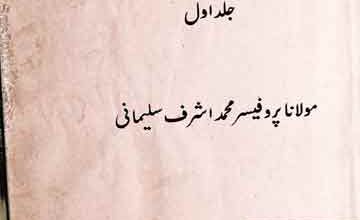 جلد اول
مولانا پروفیسر محمد اشرف سلیمانی